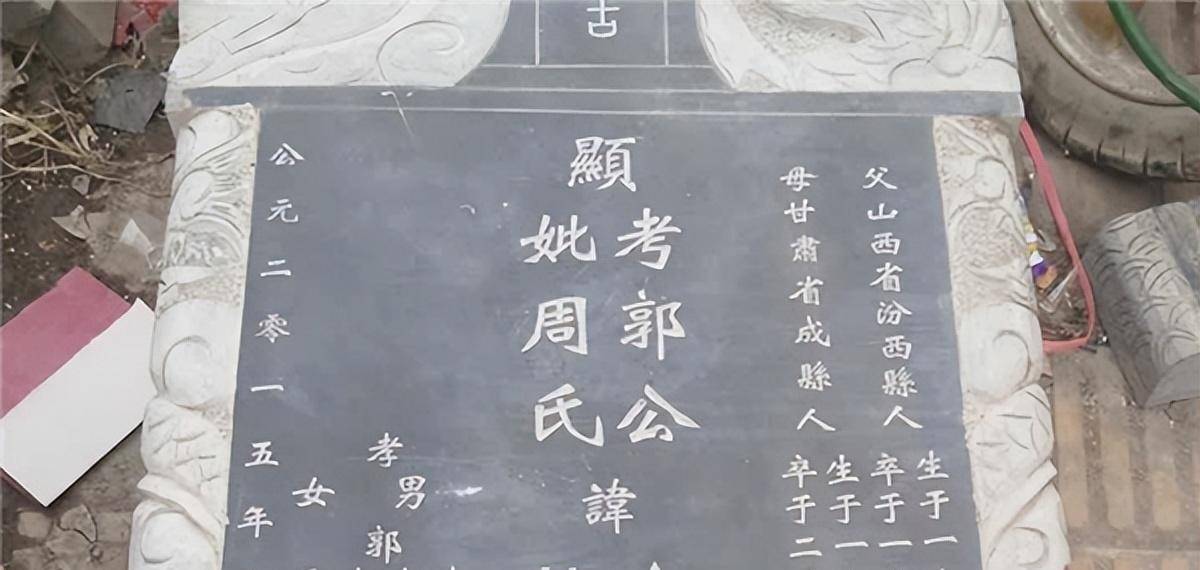 古
父山西省汾西縣人
生于一
卒于一
母甘肅省成縣人
生于一
卒于二
顯
考郭公
妣周氏
諱
孝男郭
女
公元二零一五年